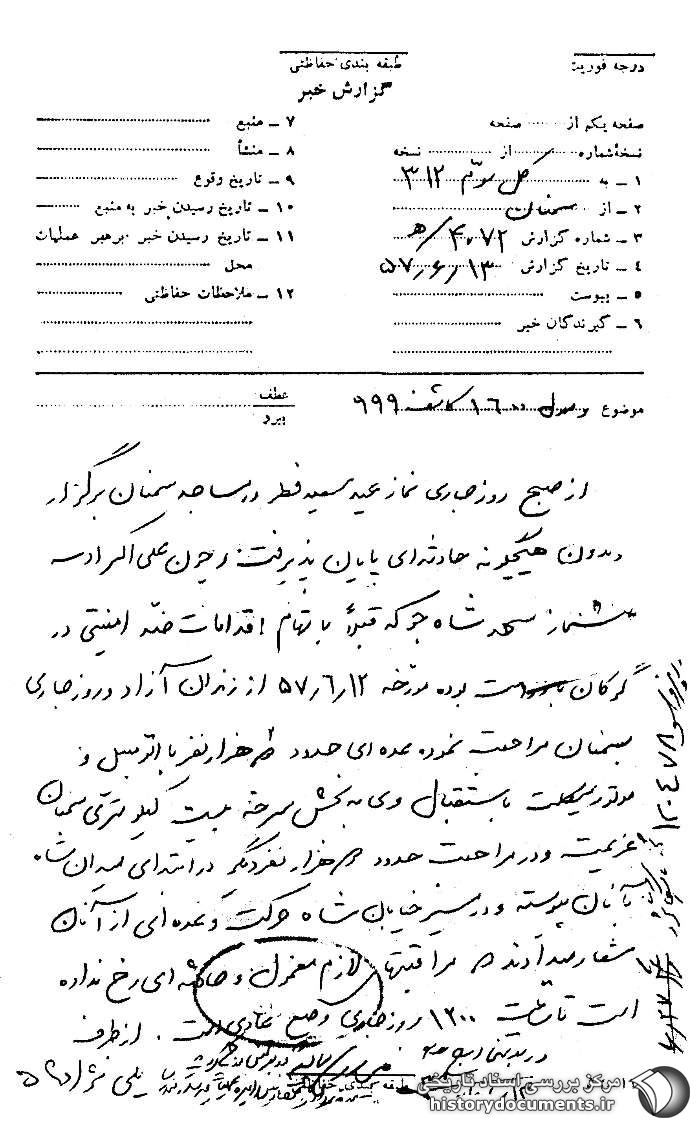 درجه فوریت
طبقه بندی حفاظتی
گزارش خبر
صفحه یکم از ........ صفحه
نسخه شماره ........ از ........ نسخه
۱ – به کل سوم ۳۱۲
۲ – از سمنان
۳ – شماره گزارش ۴۰۷۲/ﻫ
۴ – تاریخ گزارش ۵۷٫۶٫۱۳
۵ – پیوست
۶ – گیرندگان خبر
۷ – منبع
۸ – منشأ
۹ – تاریخ وقوع
۱۰ – تاریخ رسیدن خبر به منبع
۱۱ – تاریخ رسیدن خبر برهبر عملیات
محل
۱۲ – ملاحظات حفاظتی
موضوع
عطف
پیرو
از صبح روز جاری نماز عید سعید فطر در مساجد سمنان برگزار
و بدون هیچگونه حادثه‌ای پایان پذیرفت و چون علی اکبر
پیشنماز مسجد شاه جو که قبلاً باتهام اقدامات ضد امنیتی در
گرگان بوده مورخه ۵۷٫۶٫۱۲ از زندان آزاد و روز جاری
بسمنان مراجعت نموده عده ای حدود هزار نفر با اتومبیل و
موتورسیکلت باستقبال وی به بخش سرخه بیست کیلومتری سمنان
عزیمت و در مراجعت حدود هزار نفر دیگر در ابتدای میدان شاه
بآنان پیوسته و در مسیر خیابان شاه حرکت و عده ای از آنان
شعار میدادند مراقبتها لازم معمول و حادثه ای رخ نداده
است تا ساعت ۱۲۰۰ روز جاری وضع عادی است. از طرف
طبقه بندی حفاظتی
مرکز بررسی اسناد تاریخی
historydocuments.ir